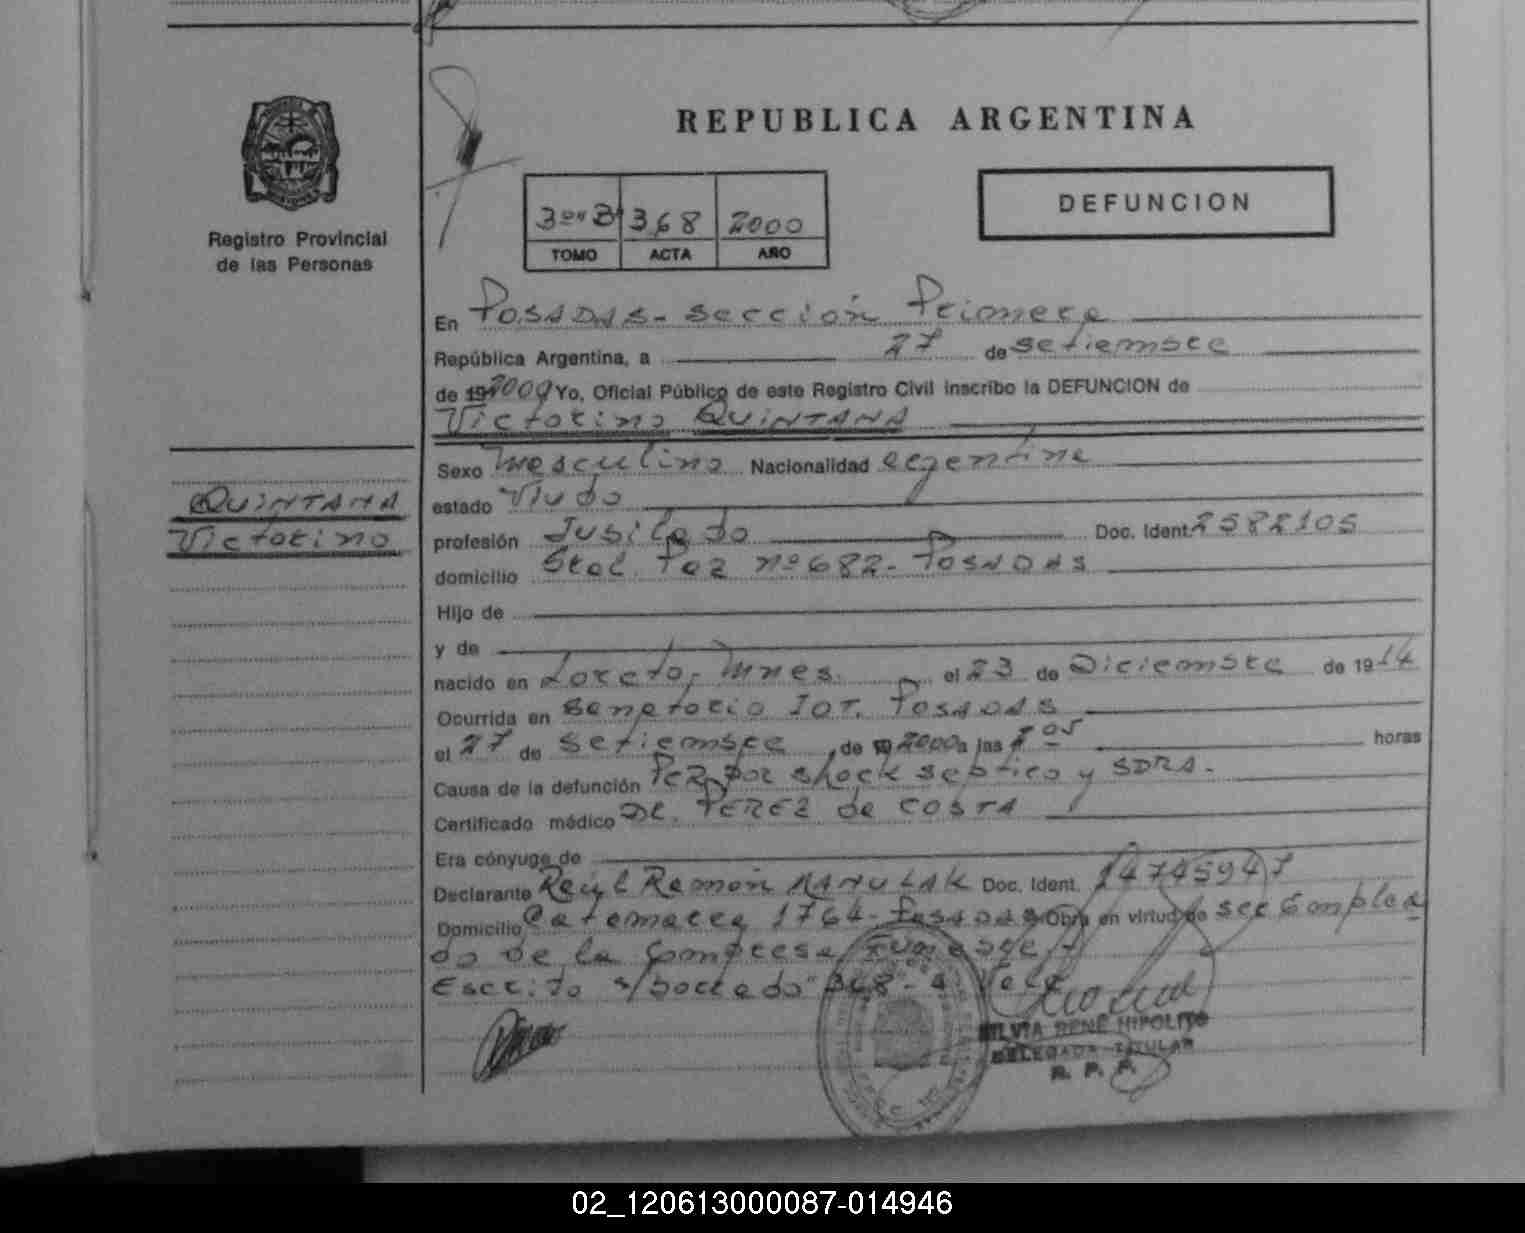 REPUBLICA ARGENTINA
DEFUNCION
Registro Provincial
de las Personas
3º "B" 368 2000
TOMO ACTA AÑO
En Posadas - sección Primera
República Argentina, a 27 de setiembre
de 19 2000 Yo, Oficial Público de este Registro Civil inscribo la DEFUNCION de
Victorino QUINTANA
QUINTANA
Victorino
Sexo Masculino Nacionalidad argentina
estado Viudo
profesión Jubilado Doc. Ident. 2582105
domicilio Gral. Paz nº 682 - Posadas
Hijo de
y de
nacido en Loreto, Mnes. el 23 de Diciembre de 1914
Ocurrida en Sanatorio IOT. Posadas
el 27 de setiembre de 19 2000 a las 05 horas
Causa de la defunción PCR por shock septico y SDRA.
Certificado médico Dr. PEREZ de COSTA
Era cónyuge de
Declarante Raúl Ramón Doc. Ident. 14745947
Domicilio Catamarca 1764 - Posadas Obra en virtud de ser emplea
do de la empresa funebre
Escrito s/borrado "368 - 4 Vale
SILVIA RENE HIPOLITO
DELEGADA TITULAR
R. P. P.
02_120613000087-014946